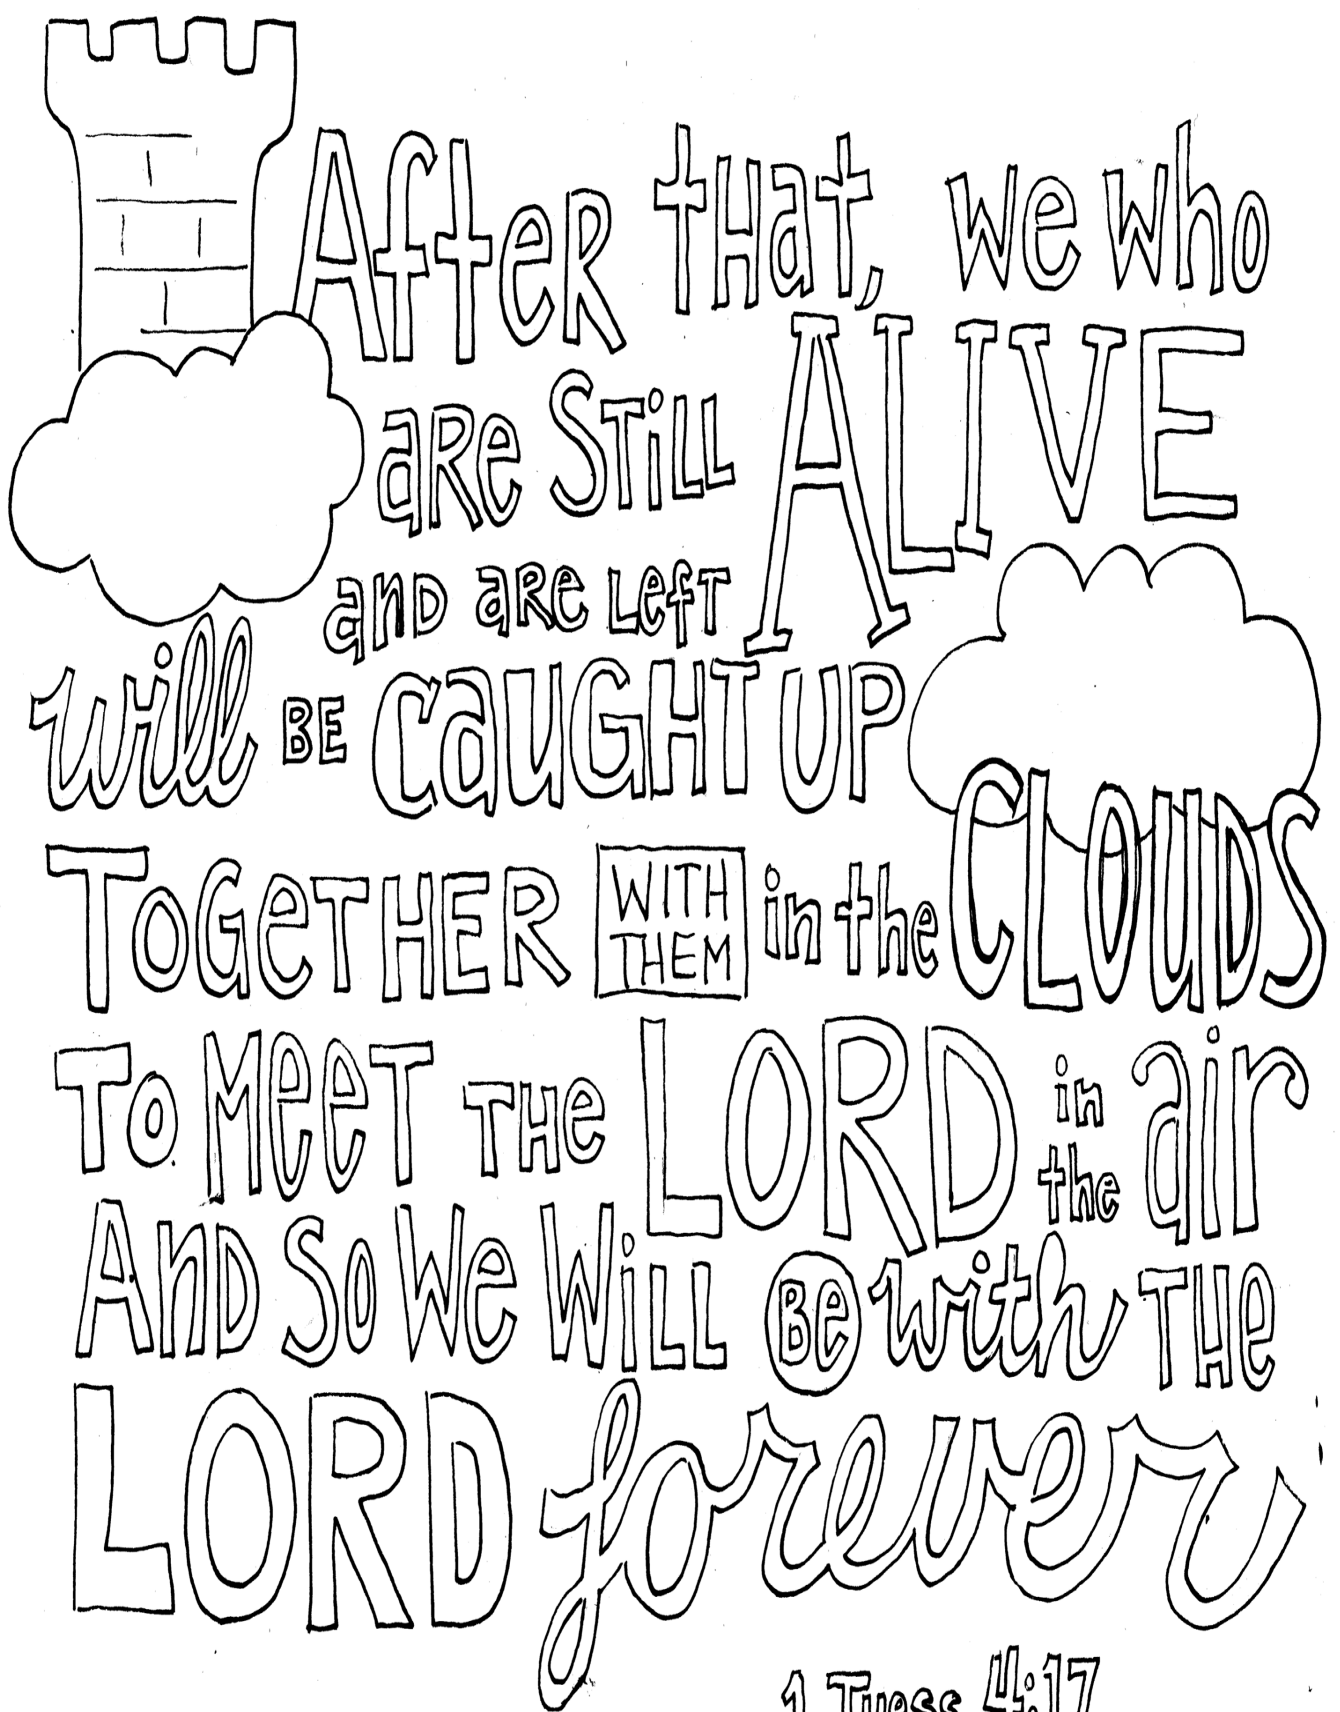 After tHat, we who
are STiLL ALIVE
and are Left
will BE CaUGHT UP
TOGeTHER WITH THEM in the CLOUDS
To MeeT THe LORD in the air
And So We WiLL Be with THe
LORD forever
1 THess 4:17